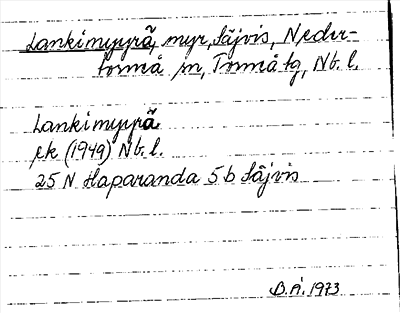 Lankimyyrä, myr, Säjvis, Neder-
torneå sn, Torneå tg, Nb. l.
Lankimyyrä
ek (1949) Nb. l.
25 N Haparanda 5 b Säjvis
B.Å. 1973